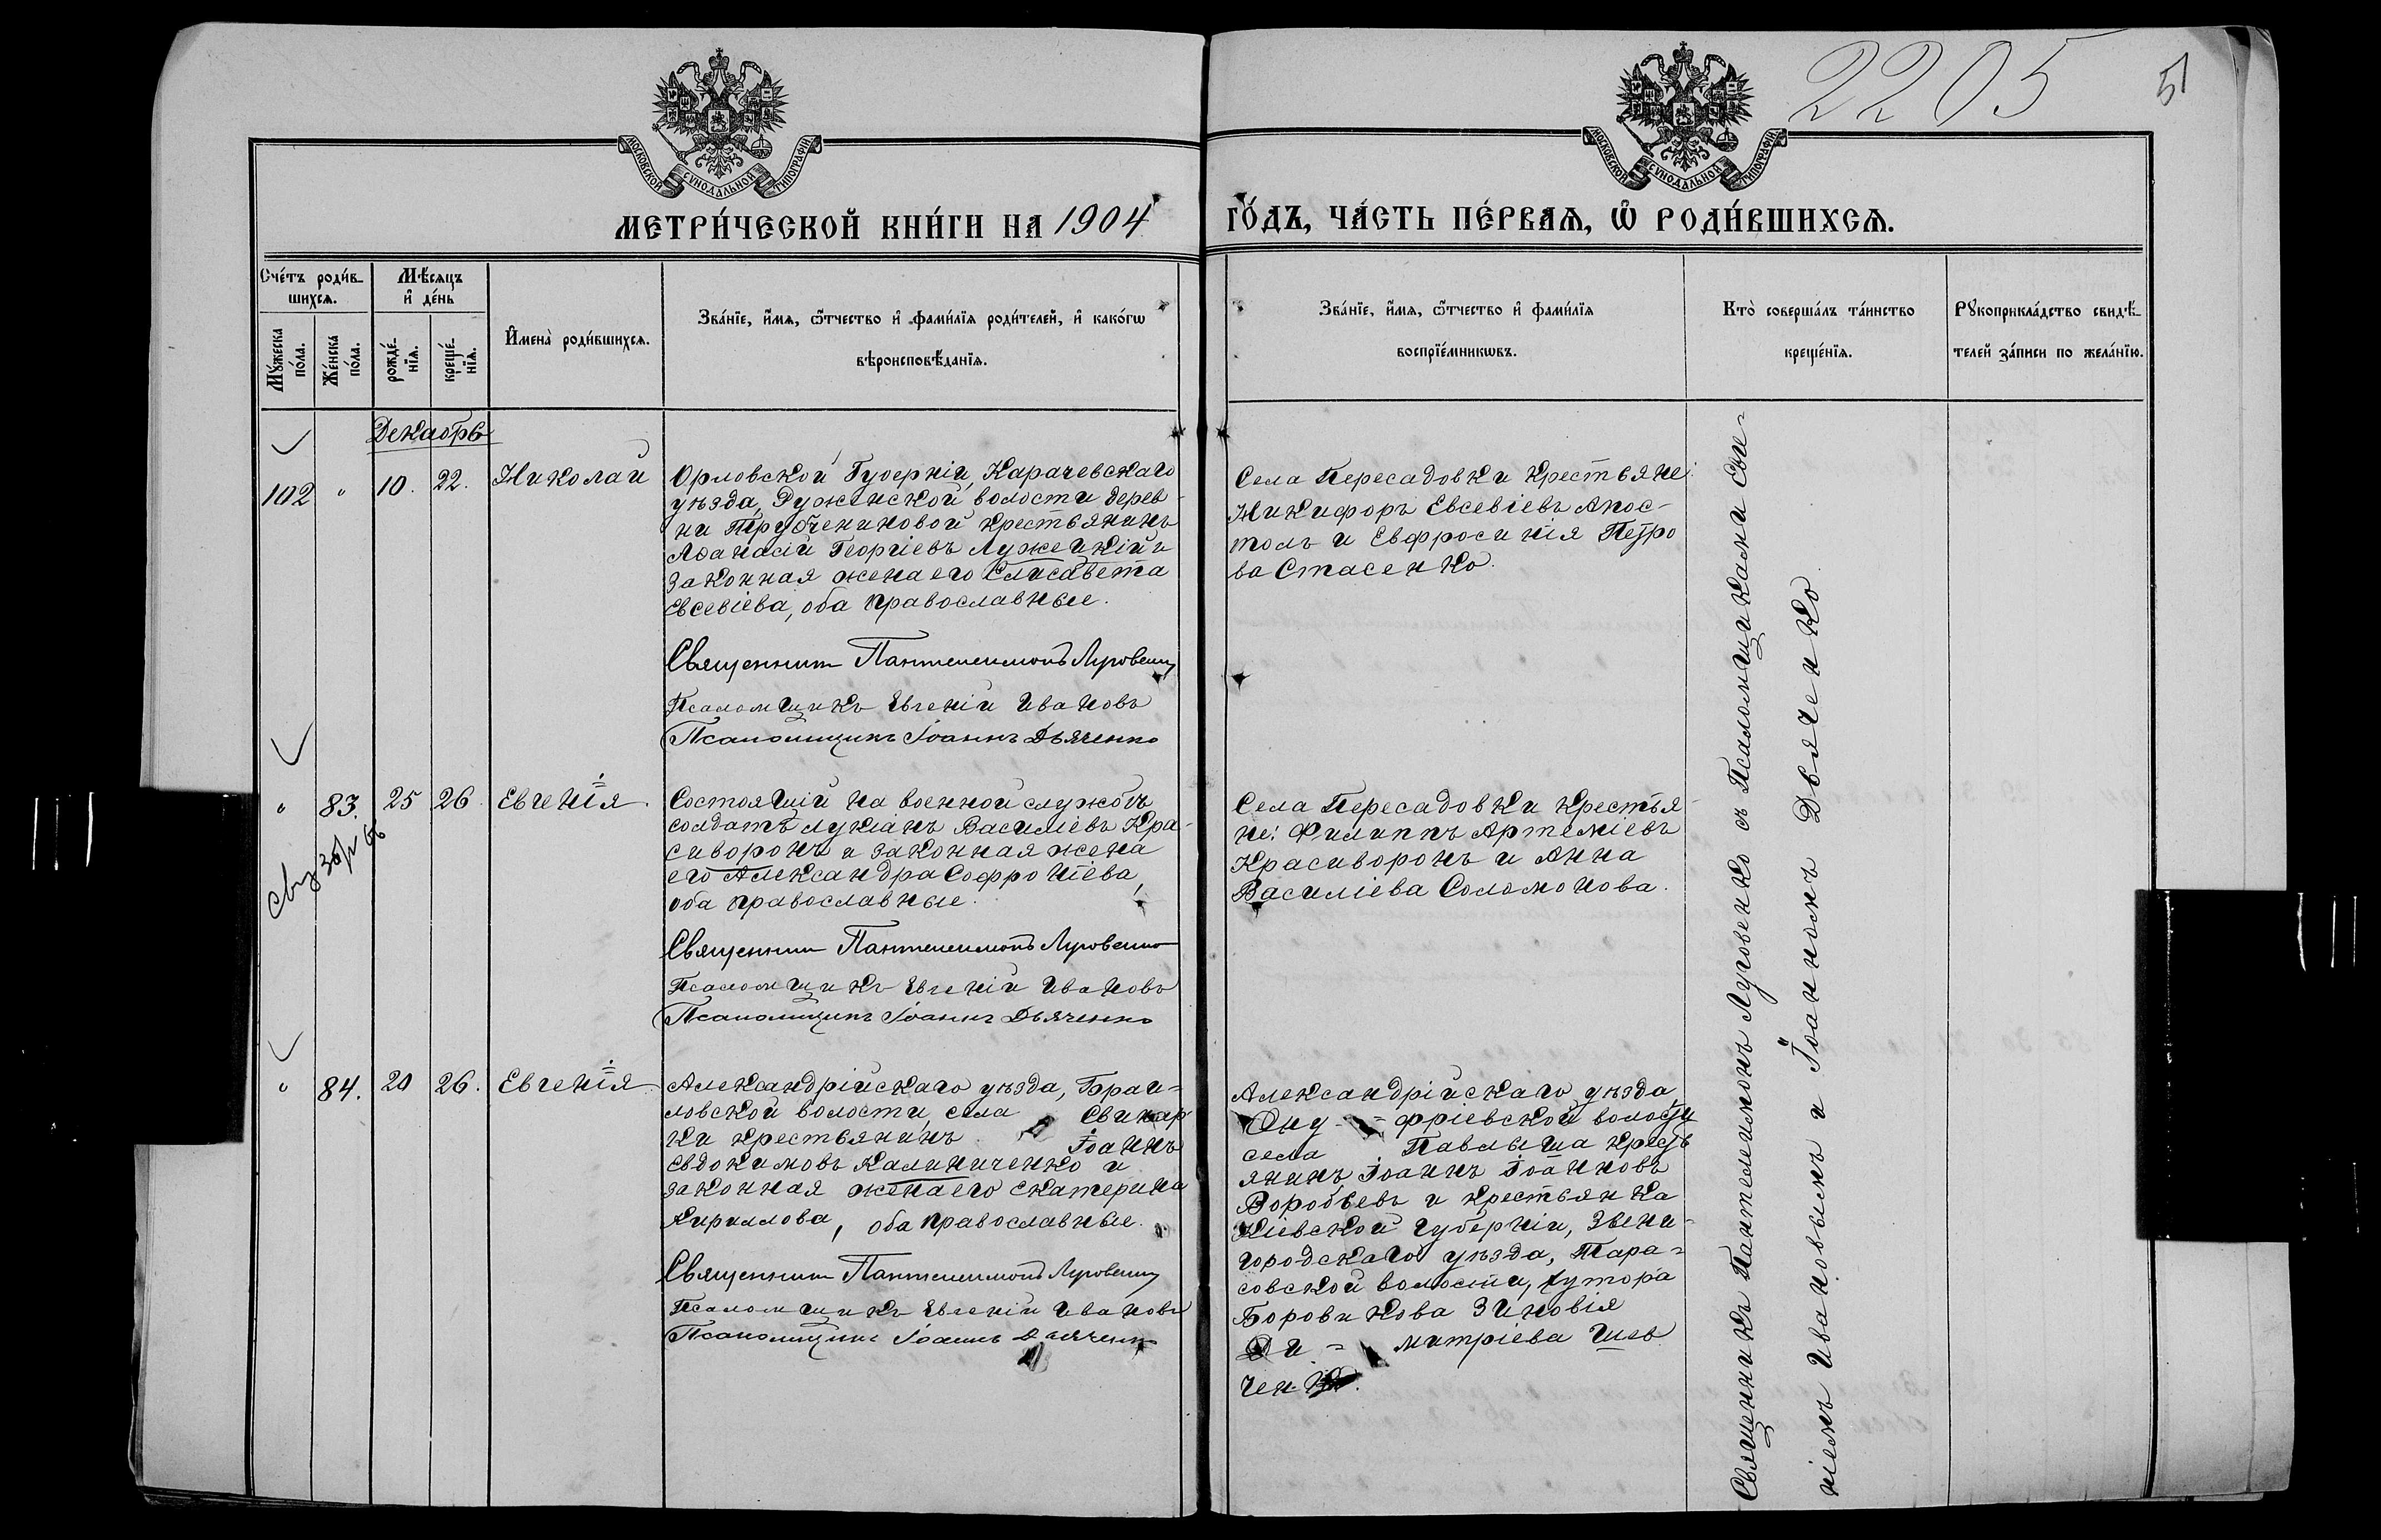 2205
51
МОСКОВСКОЙ СѴНОДАЛЬНОЙ ТИПОГРАФІИ
МОСКОВСКОЙ СѴНОДАЛЬНОЙ ТИПОГРАФІИ
МЕТРИ́ЧЕСКОЙ КНИ́ГИ НА 1904
ГО́ДЪ, ЧА́СТЬ ПЕ́РВАѦ, Ѽ РОДИ́ВШИХСѦ.
Сче́тъ роди́в-
шихсѧ.
Мꙋ́жеска
по́ла.
Же́нска
по́ла.
Мѣ́сѧцъ
и҆ де́нь
рожде́-
нїѧ.
креще́-
нїѧ.
И҆мена̀ роди́вшихсѧ.
Зва́нїе, и҆́мѧ, ѻ҆́тчество и҆ фами́лїѧ роди́телей, и҆ како́гѡ
вѣроисповѣ́данїѧ.
Зва́нїе, и҆́мѧ, ѻ҆́тчество и҆ фами́лїѧ
воспрїе́мникѡвъ.
Кто̀ соверша́лъ та́инство
креще́нїѧ.
Рꙋкоприкла́дство свидѣ́-
телей за́писи по жела́нїю.
Декабрь
102 " 10. 22. Николай
Орловской Губерніи, Карачевскаго
уѣзда, Руженской волости дерев-
ни Трубчениновой крестьянинъ
Аѳанасій Георгіевъ Лужецкій и
законная жена его Елисавета
Евсевіева, оба православные.
Священникъ Пантелеимонъ Луговенко
Псаломщикъ Евгеній Ивановъ
Псаломщикъ Іоаннъ Дьяченко
Села Пересадовки крестьяне:
Никифоръ Евсевіевъ Апос-
толъ и Евфросинія Петро
ва Стасенко.
" 83. 25 26. Евгенія.
Состоящій на военной службѣ
солдатъ Лукіанъ Василіевъ Кра-
сиворонъ и законная жена
его Александра Софроніева,
оба православные.
Священникъ Пантелеимонъ Луговенко
Псаломщикъ Евгеній Ивановъ
Псаломщикъ Іоаннъ Дьяченко
Села Пересадовки крестья-
не: Филиппъ Артеміевъ
Красиворонъ и Анна
Василіева Соломонова.
" 84. 20 26. Евгенія
Александрійскаго уѣзда, Браи=
ловской волости, села Свинар
ки крестьянинъ Іоаннъ
Евдокимовъ Калиниченко и
законная жена его Екатерина
Кириллова, оба православные.
Священникъ Пантелеимонъ Луговенко
Псаломщикъ Евгеній Ивановъ
Псаломщикъ Іоаннъ Дьяченко
Александрійскаго уѣзда,
Ону-=фріевской волости
села Павлыша кресть
янинъ Іоаннъ Іоанновъ
Воробьевъ и крестьянка
Кіевской губерніи, Звени-
городскаго уѣзда, Тара=
совской волости, хутора
Боровикова Зиновія
Ди= митріева Шев
ченко.
Священникъ Пантелеимонъ Луговенко съ Псаломщиками Евге-
ніемъ Ивановымъ и Іоанномъ Дьяченко